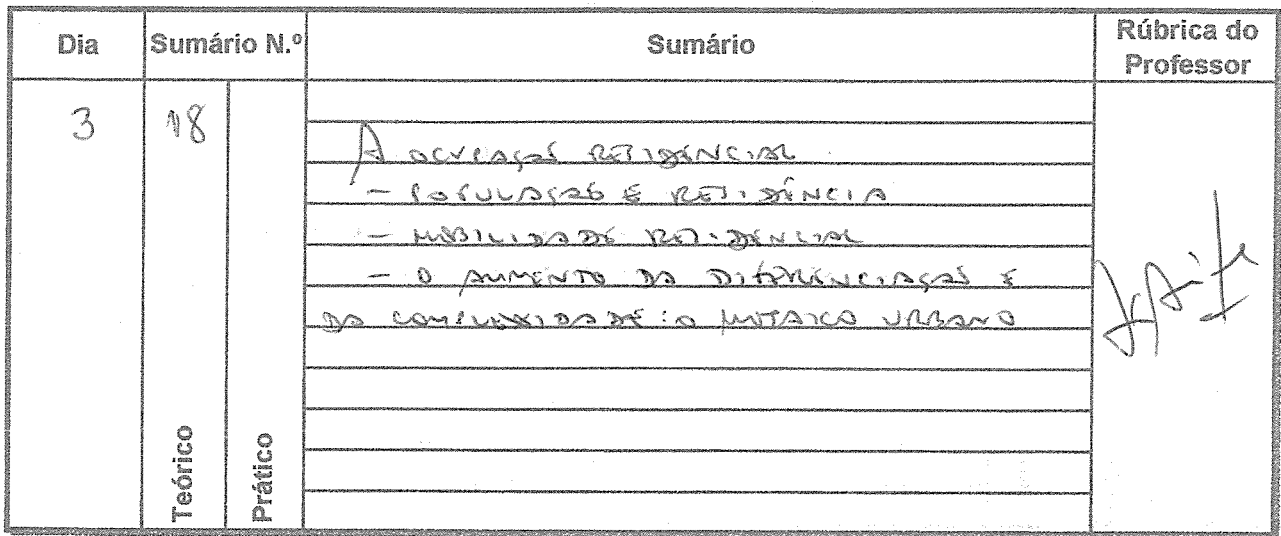 Dia Sumário N.º Sumário Rúbrica do Professor
3 18
A OCUPAÇÃO RESIDENCIAL
- POPULAÇÃO E RESIDÊNCIA
- MOBILIDADE RESIDENCIAL
- O AUMENTO DA DIFERENCIAÇÃO E
DA COMPLEXIDADE: O MOSAICO URBANO
Teórico
Prático